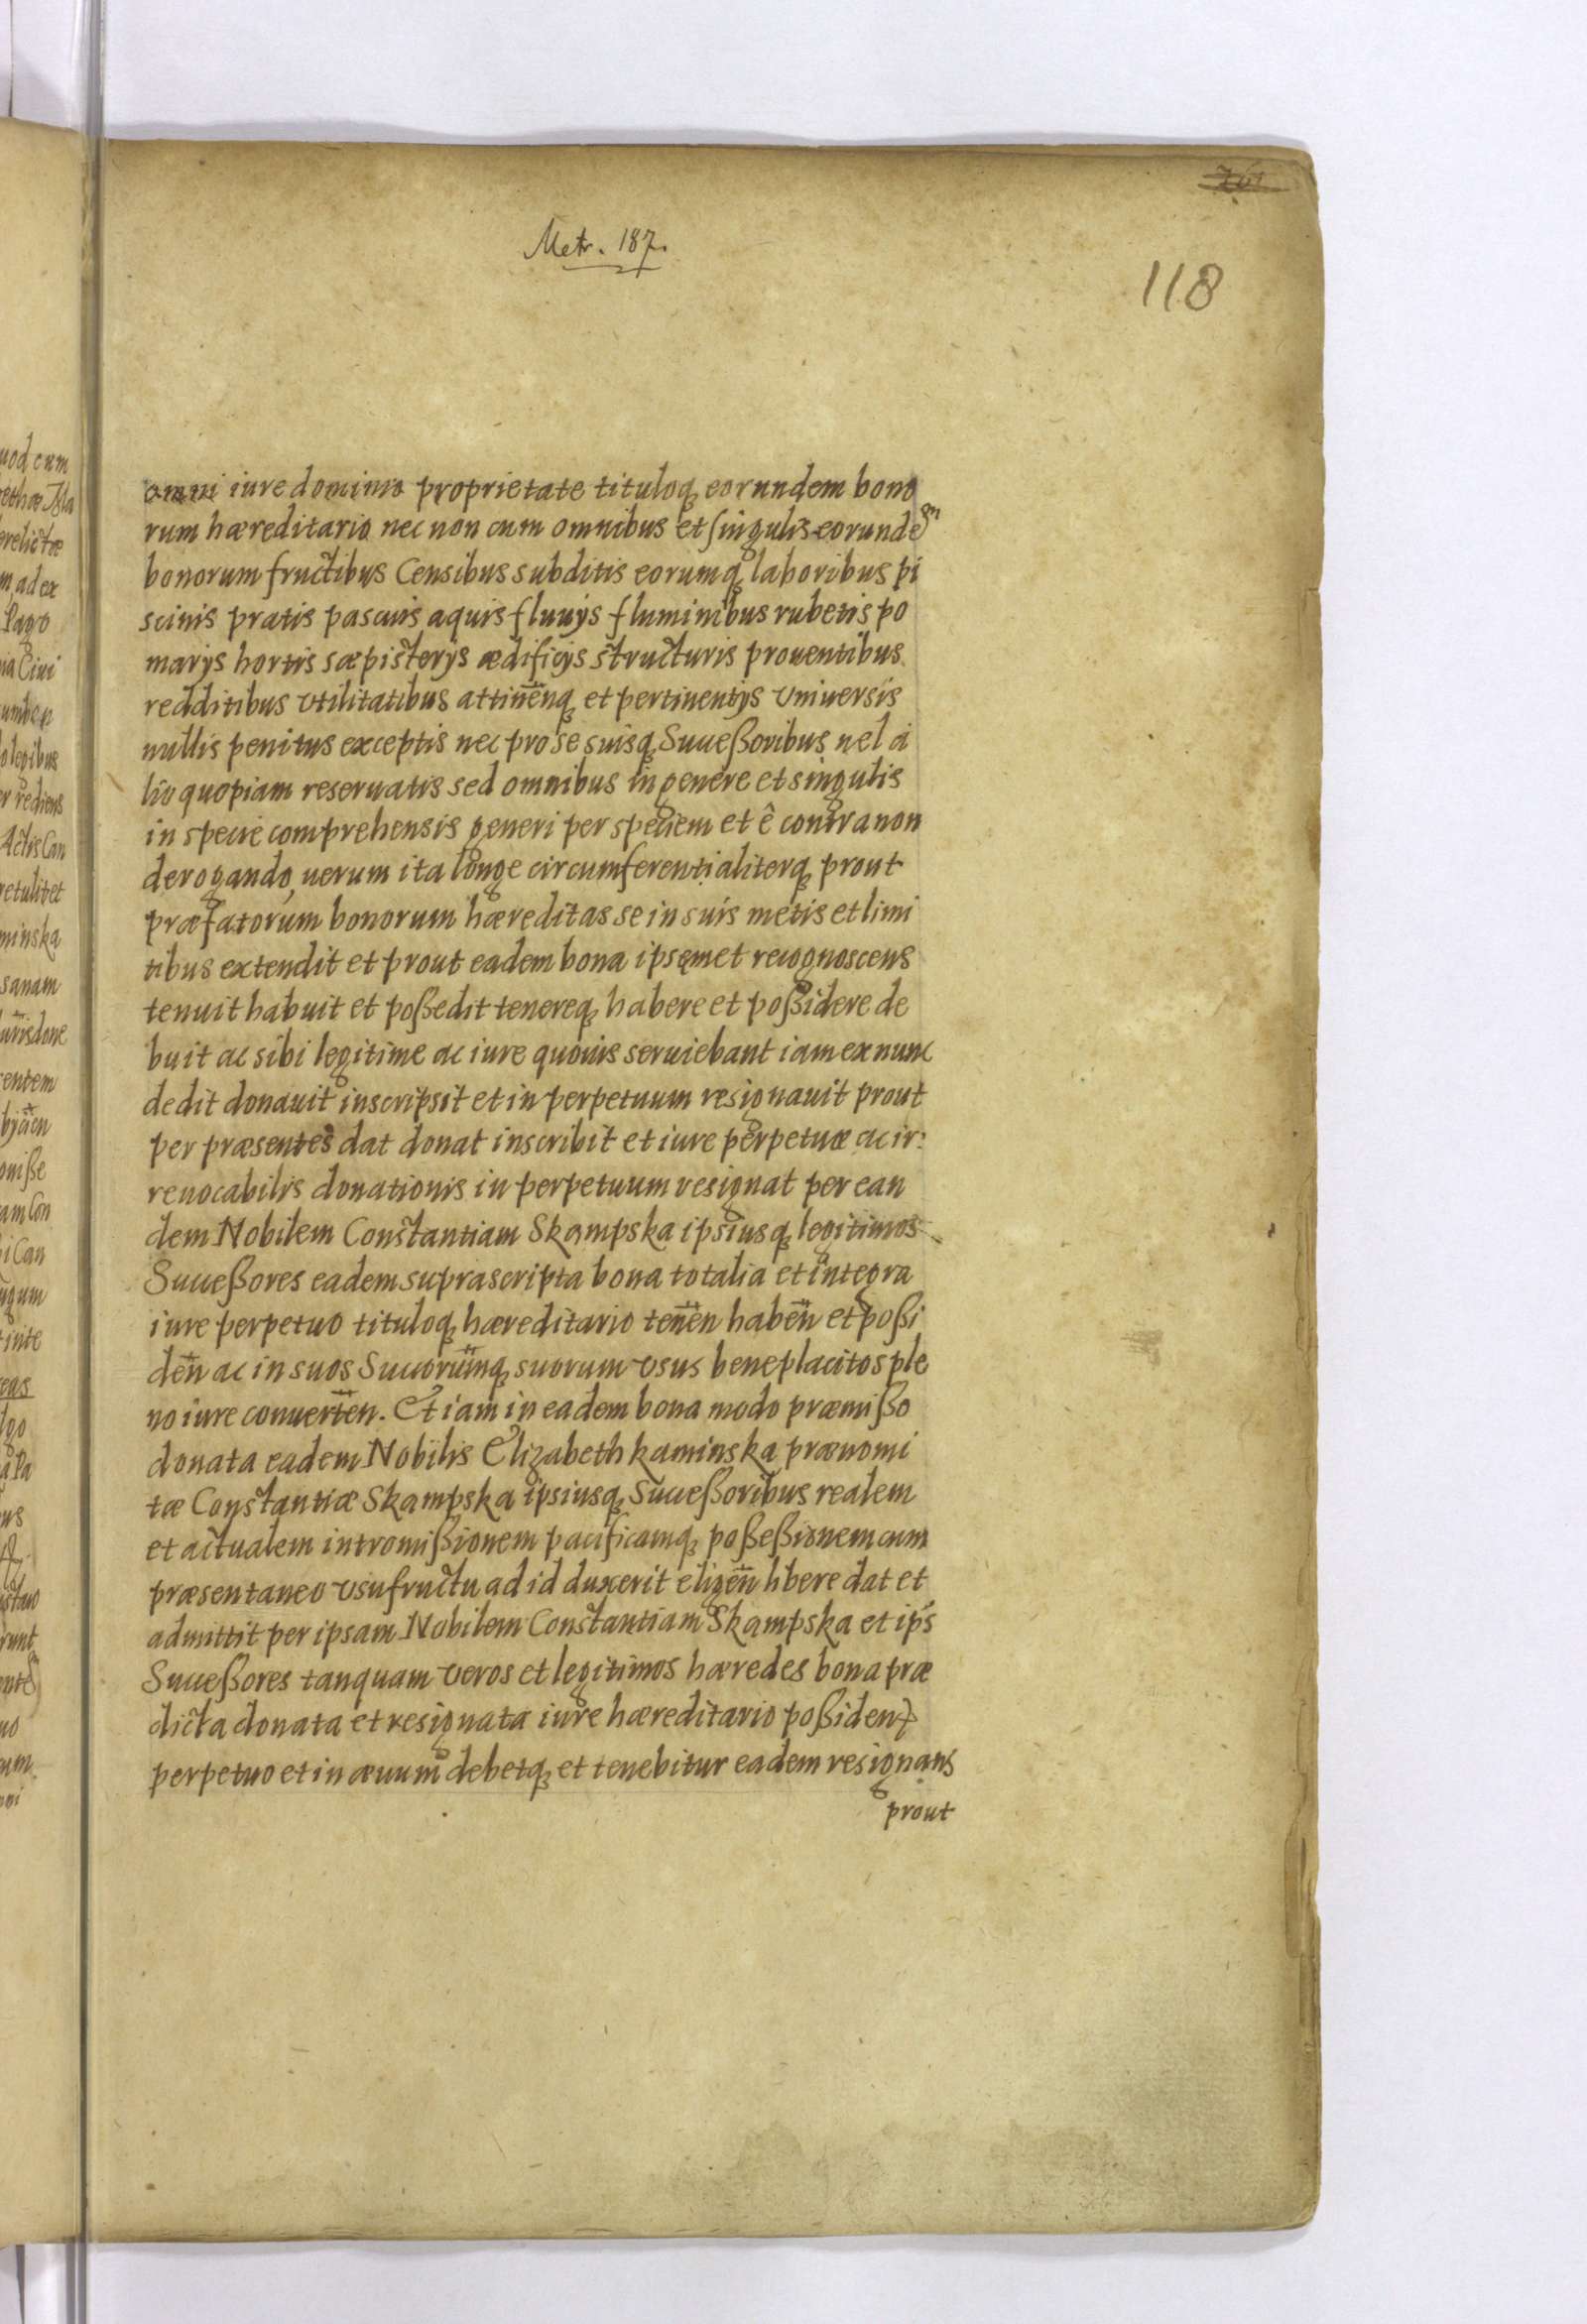 Metr. 187.
118
omni iure dominio proprietate tituloq eorundem bono
rum hæreditario nec non cum omnibus et singulis eorundem
bonorum fructibus Censibus subditis eorumq laboribus pi
scinis pratis pascuis aquis fluuÿs fluminibus rubetis po
marÿs hortis sæpisterÿs ædificÿs structuris prouentibus
redditibus vtilitatibus attinenq et pertinentÿs vniuersis
nullis penitus exceptis nec pro se suisq Successoribus uel a
lio quopiam reseruatis sed omnibus in genere et singulis
in specie comprehensis generi per speciem et ê contra non
derogando, uerum ita longe circumferentialiterq prout
præfatorum bonorum hæreditas se in suis metis et limi
tibus extendit et prout eadem bona ipsęmet recognoscens
tenuit habuit et poßedit tenereq habere et poßidere de
buit ac sibi legitime ac iure quouis seruiebant iam ex nunc
dedit donauit inscripsit et in perpetuum resignauit prout
per præsentes dat donat inscribit et iure perpetuæ ac ir:
reuocabilis donationis in perpetuum resignat per ean
dem Nobilem Constantiam Skąmpska ipsiusq legitimos
Succeßores eadem suprascripta bona totalia et integra
iure perpetuo tituloq hæreditario tenen haben et poßi
den ac in suos Succorumq suorum vsus beneplacitos ple
no iure conuerten. Et iam in eadem bona modo præmißo
donata eadem Nobilis Elizabeth kaminska prænomi
tæ Constantiæ Skąmpska ipsiusq Succeßoribus realem
et actualem intromißionem pacificamq poßeßionem cum
præsentaneo vsufructu ad id duxerit eligen libere dat et
admittit per ipsam Nobilem Constantiam Skąmpska et ips
Succeßores tanquam veros et legitimos hæredes bona præ
dicta donata et resignata iure hæreditario poßiden
perpetuo et in æuum debetq et tenebitur eadem resignans
prout